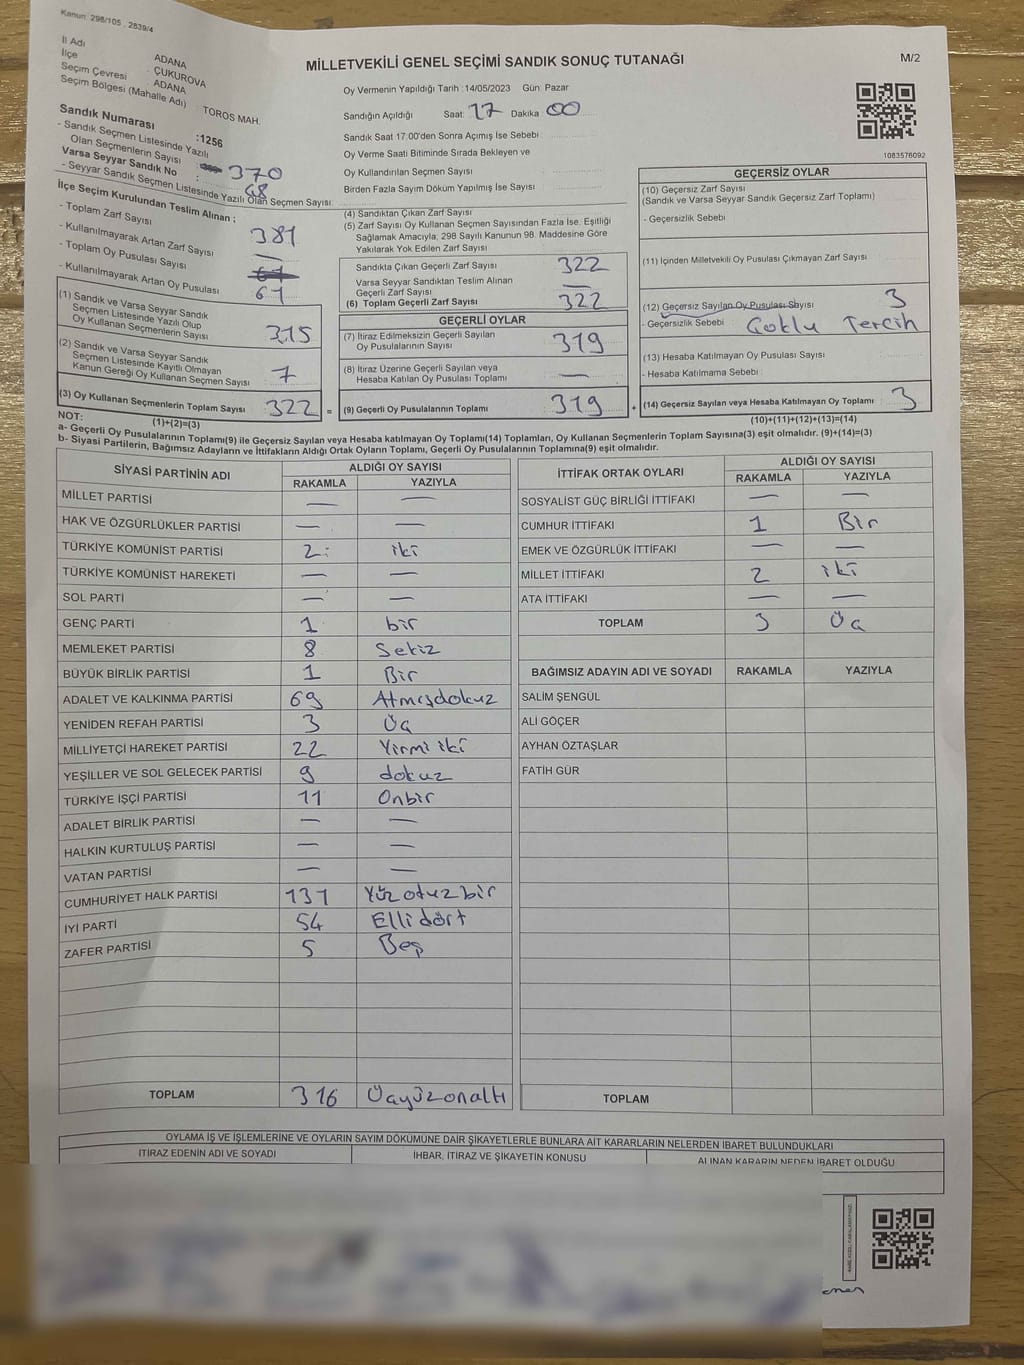 Kanun: 298/105 , 2839/4
İl Adı ADANA
İlçe ÇUKUROVA
Seçim Çevresi ADANA
Seçim Bölgesi (Mahalle Adı) TOROS MAH.
Sandık Numarası :1256
- Sandık Seçmen Listesinde Yazılı
Olan Seçmenlerin Sayısı 370
Varsa Seyyar Sandık No :
- Seyyar Sandık Seçmen Listesinde Yazılı Olan Seçmen Sayısı:
İlçe Seçim Kurulundan Teslim Alınan ;
- Toplam Zarf Sayısı 381
- Kullanılmayarak Artan Zarf Sayısı —
- Toplam Oy Pusulası Sayısı
- Kullanılmayarak Artan Oy Pusulası 61
(1) Sandık ve Varsa Seyyar Sandık
Seçmen Listesinde Yazılı Olup
Oy Kullanan Seçmenlerin Sayısı 315
(2) Sandık ve Varsa Seyyar Sandık
Seçmen Listesinde Kayıtlı Olmayan
Kanun Gereği Oy Kullanan Seçmen Sayısı 7
(3) Oy Kullanan Seçmenlerin Toplam Sayısı 322 =
(1)+(2)=(3)
MİLLETVEKİLİ GENEL SEÇİMİ SANDIK SONUÇ TUTANAĞI
M/2
Oy Vermenin Yapıldığı Tarih :14/05/2023 Gün: Pazar
Sandığın Açıldığı Saat: 17 Dakika 00
Sandık Saat 17.00'den Sonra Açımış İse Sebebi
Oy Verme Saati Bitiminde Sırada Bekleyen ve
Oy Kullandırılan Seçmen Sayısı
Birden Fazla Sayım Döküm Yapılmış İse Sayısı
(4) Sandıktan Çıkan Zarf Sayısı
(5) Zarf Sayısı Oy Kullanan Seçmen Sayısından Fazla İse, Eşitliği
Sağlamak Amacıyla, 298 Sayılı Kanunun 98. Maddesine Göre
Yakılarak Yok Edilen Zarf Sayısı
Sandıkta Çıkan Geçerli Zarf Sayısı 322
Varsa Seyyar Sandıktan Teslim Alınan
Geçerli Zarf Sayısı —
(6) Toplam Geçerli Zarf Sayısı 322
GEÇERLİ OYLAR
(7) İtiraz Edilmeksizin Geçerli Sayılan
Oy Pusulalarının Sayısı 319
(8) İtiraz Üzerine Geçerli Sayılan veya
Hesaba Katılan Oy Pusulası Toplamı —
(9) Geçerli Oy Pusulalarının Toplamı 319 +
1083576092
GEÇERSİZ OYLAR
(10) Geçersiz Zarf Sayısı
(Sandık ve Varsa Seyyar Sandık Geçersiz Zarf Toplamı)
- Geçersizlik Sebebi
(11) İçinden Milletvekili Oy Pusulası Çıkmayan Zarf Sayısı
(12) Geçersiz Sayılan Oy Pusulası Sayısı 3
- Geçersizlik Sebebi Çoklu Tercih
(13) Hesaba Katılmayan Oy Pusulası Sayısı
- Hesaba Katılmama Sebebi
(14) Geçersiz Sayılan veya Hesaba Katılmayan Oy Toplamı 3
(10)+(11)+(12)+(13)=(14)
NOT:
a- Geçerli Oy Pusulalarının Toplamı(9) ile Geçersiz Sayılan veya Hesaba katılmayan Oy Toplamı(14) Toplamları, Oy Kullanan Seçmenlerin Toplam Sayısına(3) eşit olmalıdır. (9)+(14)=(3)
b- Siyasi Partilerin, Bağımsız Adayların ve İttifakların Aldığı Ortak Oyların Toplamı, Geçerli Oy Pusulalarının Toplamına(9) eşit olmalıdır.
SİYASİ PARTİNİN ADI ALDIĞI OY SAYISI
RAKAMLA YAZIYLA
MİLLET PARTİSİ — —
HAK VE ÖZGÜRLÜKLER PARTİSİ — —
TÜRKİYE KOMÜNİST PARTİSİ 2 iki
TÜRKİYE KOMÜNİST HAREKETİ — —
SOL PARTİ — —
GENÇ PARTİ 1 bir
MEMLEKET PARTİSİ 8 Sekiz
BÜYÜK BİRLİK PARTİSİ 1 Bir
ADALET VE KALKINMA PARTİSİ 69 Atmışdokuz
YENİDEN REFAH PARTİSİ 3 Üç
MİLLİYETÇİ HAREKET PARTİSİ 22 Yirmi iki
YEŞİLLER VE SOL GELECEK PARTİSİ 9 dokuz
TÜRKİYE İŞÇİ PARTİSİ 11 Onbir
ADALET BİRLİK PARTİSİ — —
HALKIN KURTULUŞ PARTİSİ — —
VATAN PARTİSİ — —
CUMHURİYET HALK PARTİSİ 131 Yüzotuzbir
İYİ PARTİ 54 Ellidört
ZAFER PARTİSİ 5 Beş
TOPLAM 316 Üçyüzonaltı
İTTİFAK ORTAK OYLARI ALDIĞI OY SAYISI
RAKAMLA YAZIYLA
SOSYALİST GÜÇ BİRLİĞİ İTTİFAKI — —
CUMHUR İTTİFAKI 1 Bir
EMEK VE ÖZGÜRLÜK İTTİFAKI — —
MİLLET İTTİFAKI 2 iki
ATA İTTİFAKI — —
TOPLAM 3 Üç
BAĞIMSIZ ADAYIN ADI VE SOYADI RAKAMLA YAZIYLA
SALİM ŞENGÜL
ALİ GÖÇER
AYHAN ÖZTAŞLAR
FATİH GÜR
TOPLAM
OYLAMA İŞ VE İŞLEMLERİNE VE OYLARIN SAYIM DÖKÜMÜNE DAİR ŞİKAYETLERLE BUNLARA AİT KARARLARIN NELERDEN İBARET BULUNDUKLARI
İTİRAZ EDENİN ADI VE SOYADI İHBAR, İTİRAZ VE ŞİKAYETİN KONUSU ALINAN KARARIN NEDEN İBARET OLDUĞU